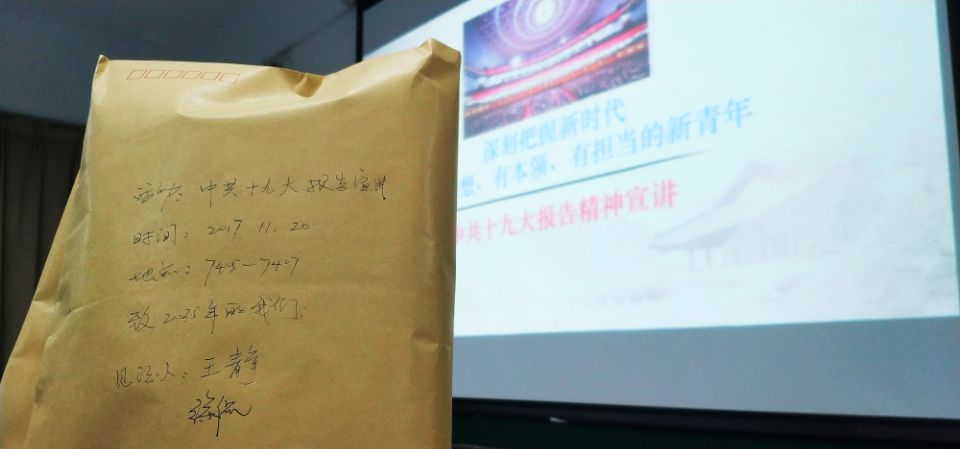 活动：中共十九大报告宣讲
时间：2017 11.20.
地点：745-747
致2035年的我们：
见证人：王静
深刻把握新时代
想、有本领、有担当的新青年
中共十九大报告精神宣讲